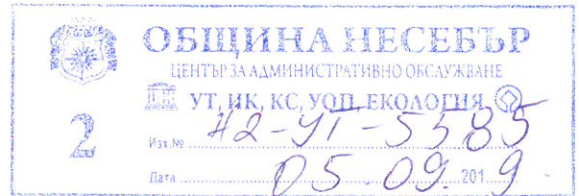 ОБЩИНА НЕСЕБЪР
ЦЕНТЪР ЗА АДМИНИСТРАТИВНО ОБСЛУЖВАНЕ
УТ, ИК, КС, УОП, ЕКОЛОГИЯ
2
Изх.№ Н2-УТ-5585
Дата 05.09.2019.